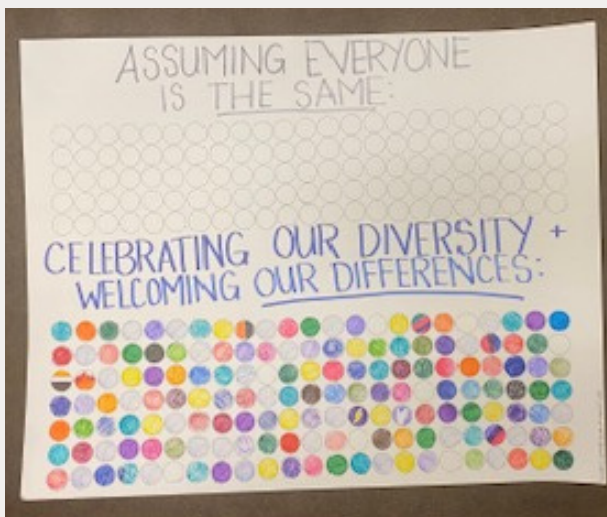 ASSUMING EVERYONE
IS THE SAME:
CELEBRATING OUR DIVERSITY +
WELCOMING OUR DIFFERENCES: